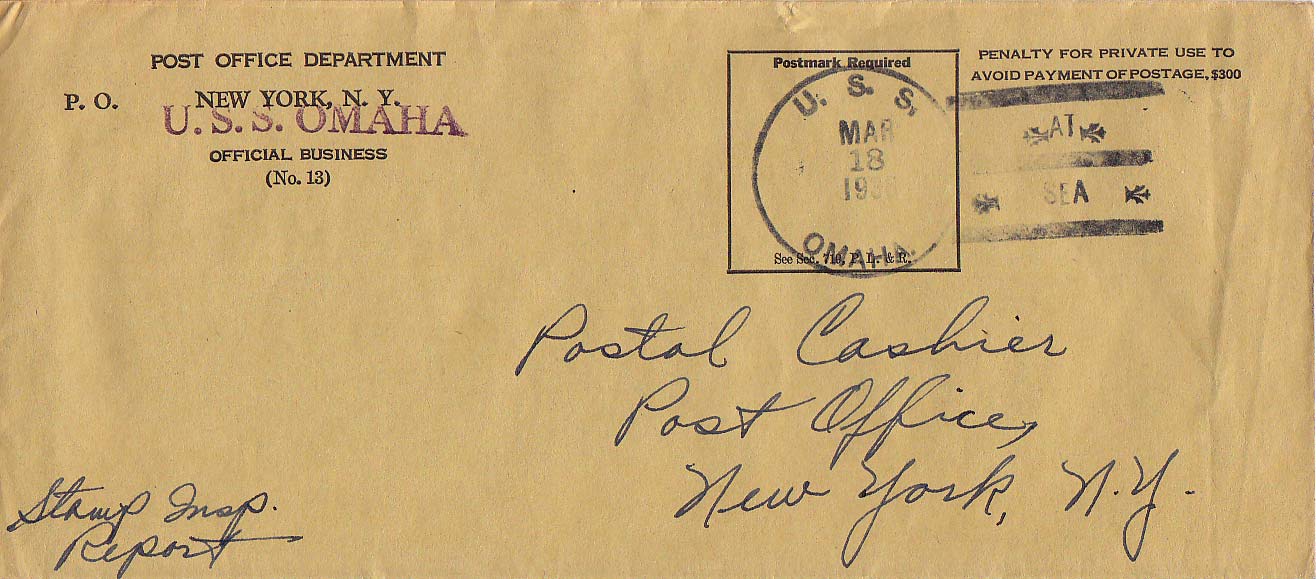 POST OFFICE DEPARTMENT
P. O. NEW YORK, N. Y.
U. S. S. OMAHA
OFFICIAL BUSINESS
(No. 13)
Postmark Required
See Sec. 710, P. L. & R.
PENALTY FOR PRIVATE USE TO
AVOID PAYMENT OF POSTAGE, $300
U. S. S.
MAR
18
OMAHA.
AT
SEA
Postal Cashier
Post Office,
New York, N.Y.
Stamp Insp.
Report